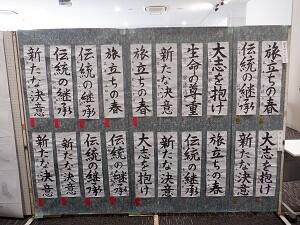 旅立ちの春
伝統の継承
大志を抱け
生命の尊重
新たな決意
旅立ちの春
旅立ちの春
伝統の継承
伝統の継承
新たな決意
大志を抱け
新たな決意
旅立ちの春
伝統の継承
新たな決意
大志を抱け
伝統の継承
伝統の継承
新たな決意
新たな決意